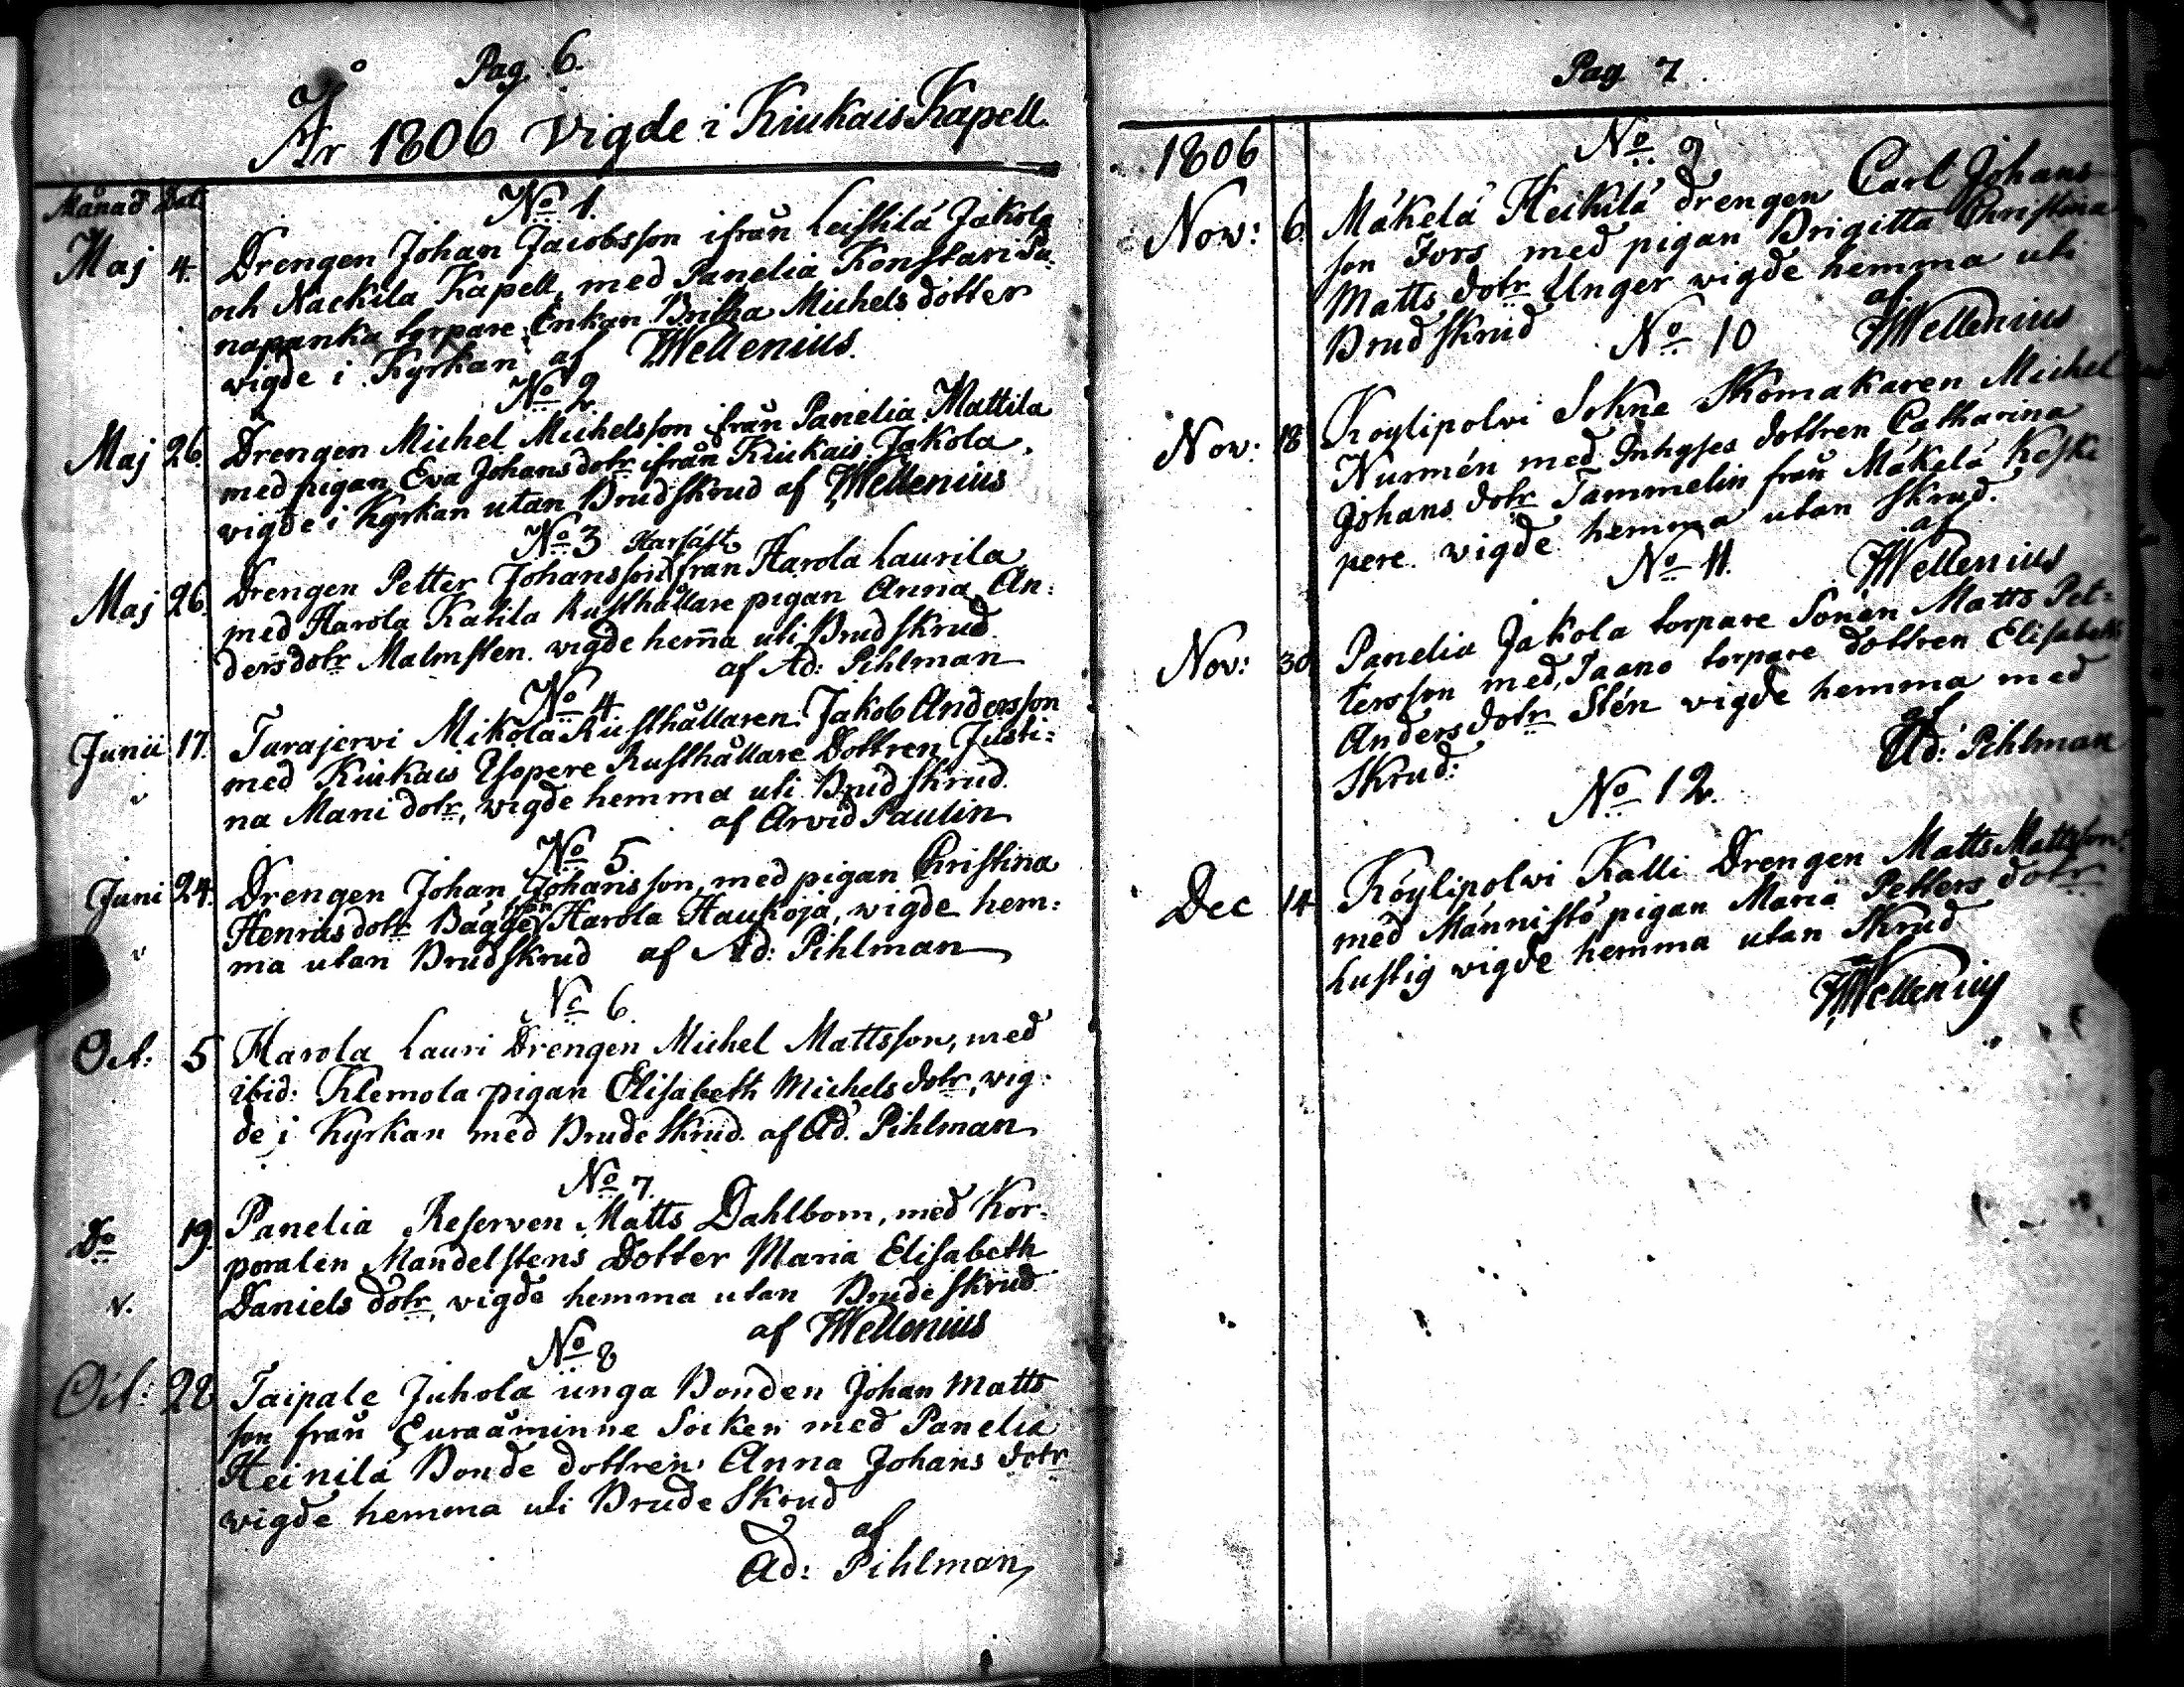 Pag. 6.
År 1806 Vigde i Kiukais Kapell.
Månad Dat:
No 1.
Maj 4. Drengen Johan Jacobsson ifrån Leistilä Jakola
och Nackila Kapell, med Panelia Konstari Pa-
napanka torpare Enkan Britha Michels dotter
vigde i Kyrkan af Wellenius.
No 2
Maj 26. Drengen Michel Michelsson från Panelia Mattila
med pigan Eva Johans dotr ifrån Kiukais Jakola,
vigde i Kyrkan utan Brudskrud af Wellenius
No 3
Maj 26. Drengen Petter Johansson från Harola Laurila
med Harola Katila Rusthållare pigan Anna An:
dersdotr Malmsten. vigde hem̄a uti Brudskrud.
af Ad: Pihlman
No 4
Junii 17. Turajervi Mikola Rusthållaren Jakob Andersson
med Kiukais Esopere Rusthållare Dottren Justi:
na Mani dotr, vigde hemma uti Brudskrud.
af Arvid Paulin
No 5
Juni 24. Drengen Johan Johansson, med pigan Christina
Henricsdotr Bagge från Harola Haukoja, vigde hem:
ma utan Brudskrud af Ad: Pihlman
No 6.
Oct: 5 Harola Lauri Drengen Michel Mattsson, med
ibid: Klemola pigan Elisabeth Michels dotr, vig:
de i Kyrkan med Brudeskrud. af Ad. Pihlman
No 7.
Do 19. Panelia Reserven Matts Dahlbom, med Kor:
poralen Mandelstens Dotter Maria Elisabeth
Daniels dotr, vigde hemma utan Brudeskrud.
af Wellenius
No 8
Oct: 22 Taipale Juhola unga Bonden Johan Matts
son från Euraåminne Socken med Panelia
Heinilä Bonde dottren Anna Johans dotr
vigde hemma uti Brude Skrud
af
Ad: Pihlman
Pag 7.
1806
No 9
Nov: 6. Mäkelä Heikilä drengen Carl Johans
son Fors med pigan Brigitta Christina
Matts dotr Unger vigde hemma uti
Brudskrud af
Wellenius
No 10
Nov: 18 Köylipolvi Sokne Skomakaren Michel
Nurmén med Inhyses dottren Catharina
Johans dotr Tammelin från Mäkelä Keski
pere. vigde hemma utan Skrud.
af
Wellenius
No 11.
Nov: 30 Panelia Jakola torpare Sonen Matts Pet:
tersson med, Paano torpare dottren Elisabeth
Anders dotr Stén vigde hemma med
Skrud: af
Ad: Pihlman
No 12.
Dec 14 Köylipolvi Kalli Drengen Matts Mattsson
med Männistö pigan Maria Petters dotr
Lustig vigde hemma utan Skrud
Wellenius